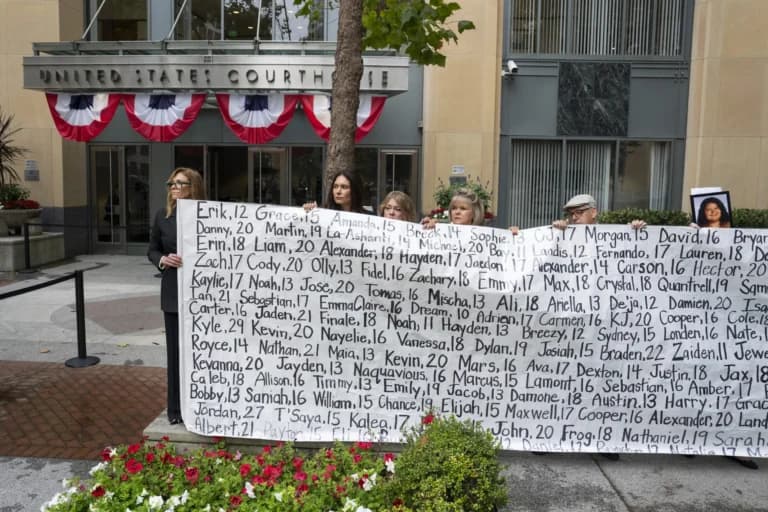 UNITED STATES COURTHOUSE
Erik, 12 Grace, 15 Amanda, 15 Break, 14 Sophie, 13 CJ, 17 Morgan, 15 David, 16 Bryan
Danny, 20 Martin, 19 La-Ashanti, 14 Michael, 20 Bay, 11 Landis, 12 Fernando, 17 Lauren, 18
Erin, 18 Liam, 20 Alexander, 18 Hayden, 17 Jaedon, 17 Alexander, 14 Carson, 16 Hector, 20
Zach, 17 Cody, 20 Olly, 13 Fidel, 16 Zachary, 18 Emmy, 17 Max, 18 Crystal, 18 Quantrell, 19
Kaylie, 17 Noah, 13 Jose, 20 Tomas, 16 Mischa, 13 Ali, 18 Ariella, 13 De'ja, 12 Damien, 20
Ian, 21 Sebastian, 17 EmmaClaire, 16 Dream, 10 Adrien, 17 Carmen, 16 KJ, 20 Cooper, 16 Cole
Carter, 16 Jaden, 21 Finale, 18 Noah, 11 Hayden, 13 Breezy, 12 Sydney, 15 Landen, 16 Nate
Kyle, 29 Kevin, 20 Nayelie, 16 Vanessa, 18 Dylan, 19 Josiah, 15 Braden, 22 Zaiden, 11
Royce, 14 Nathan, 21 Maia, 13 Kevin, 20 Mars, 16 Ava, 17 Dexton, 14 Justin, 18 Jax, 18
Kevanna, 20 Jayden, 13 Naquavious, 16 Marcus, 15 Lamont, 16 Sebastian, 16 Amber, 17
Caleb, 18 Allison, 16 Timmy, 13 Emily, 19 Jacob, 13 Damone, 18 Austin, 13 Harry, 17
Bobby, 13 Saniah, 16 William, 15 Chance, 19 Elijah, 15 Maxwell, 17 Cooper, 16 Alexander, 20
Jordan, 27 T'Saya, 15 Kalea, 17 John, 20 Frog, 18 Nathaniel, 19 Sarah
Albert, 21